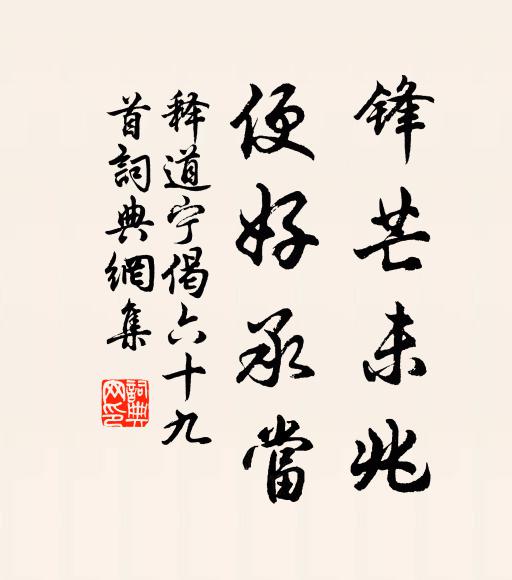 锋芒未兆
便好承當
释道宁偈六十九
首詞典網集
詞典
网印